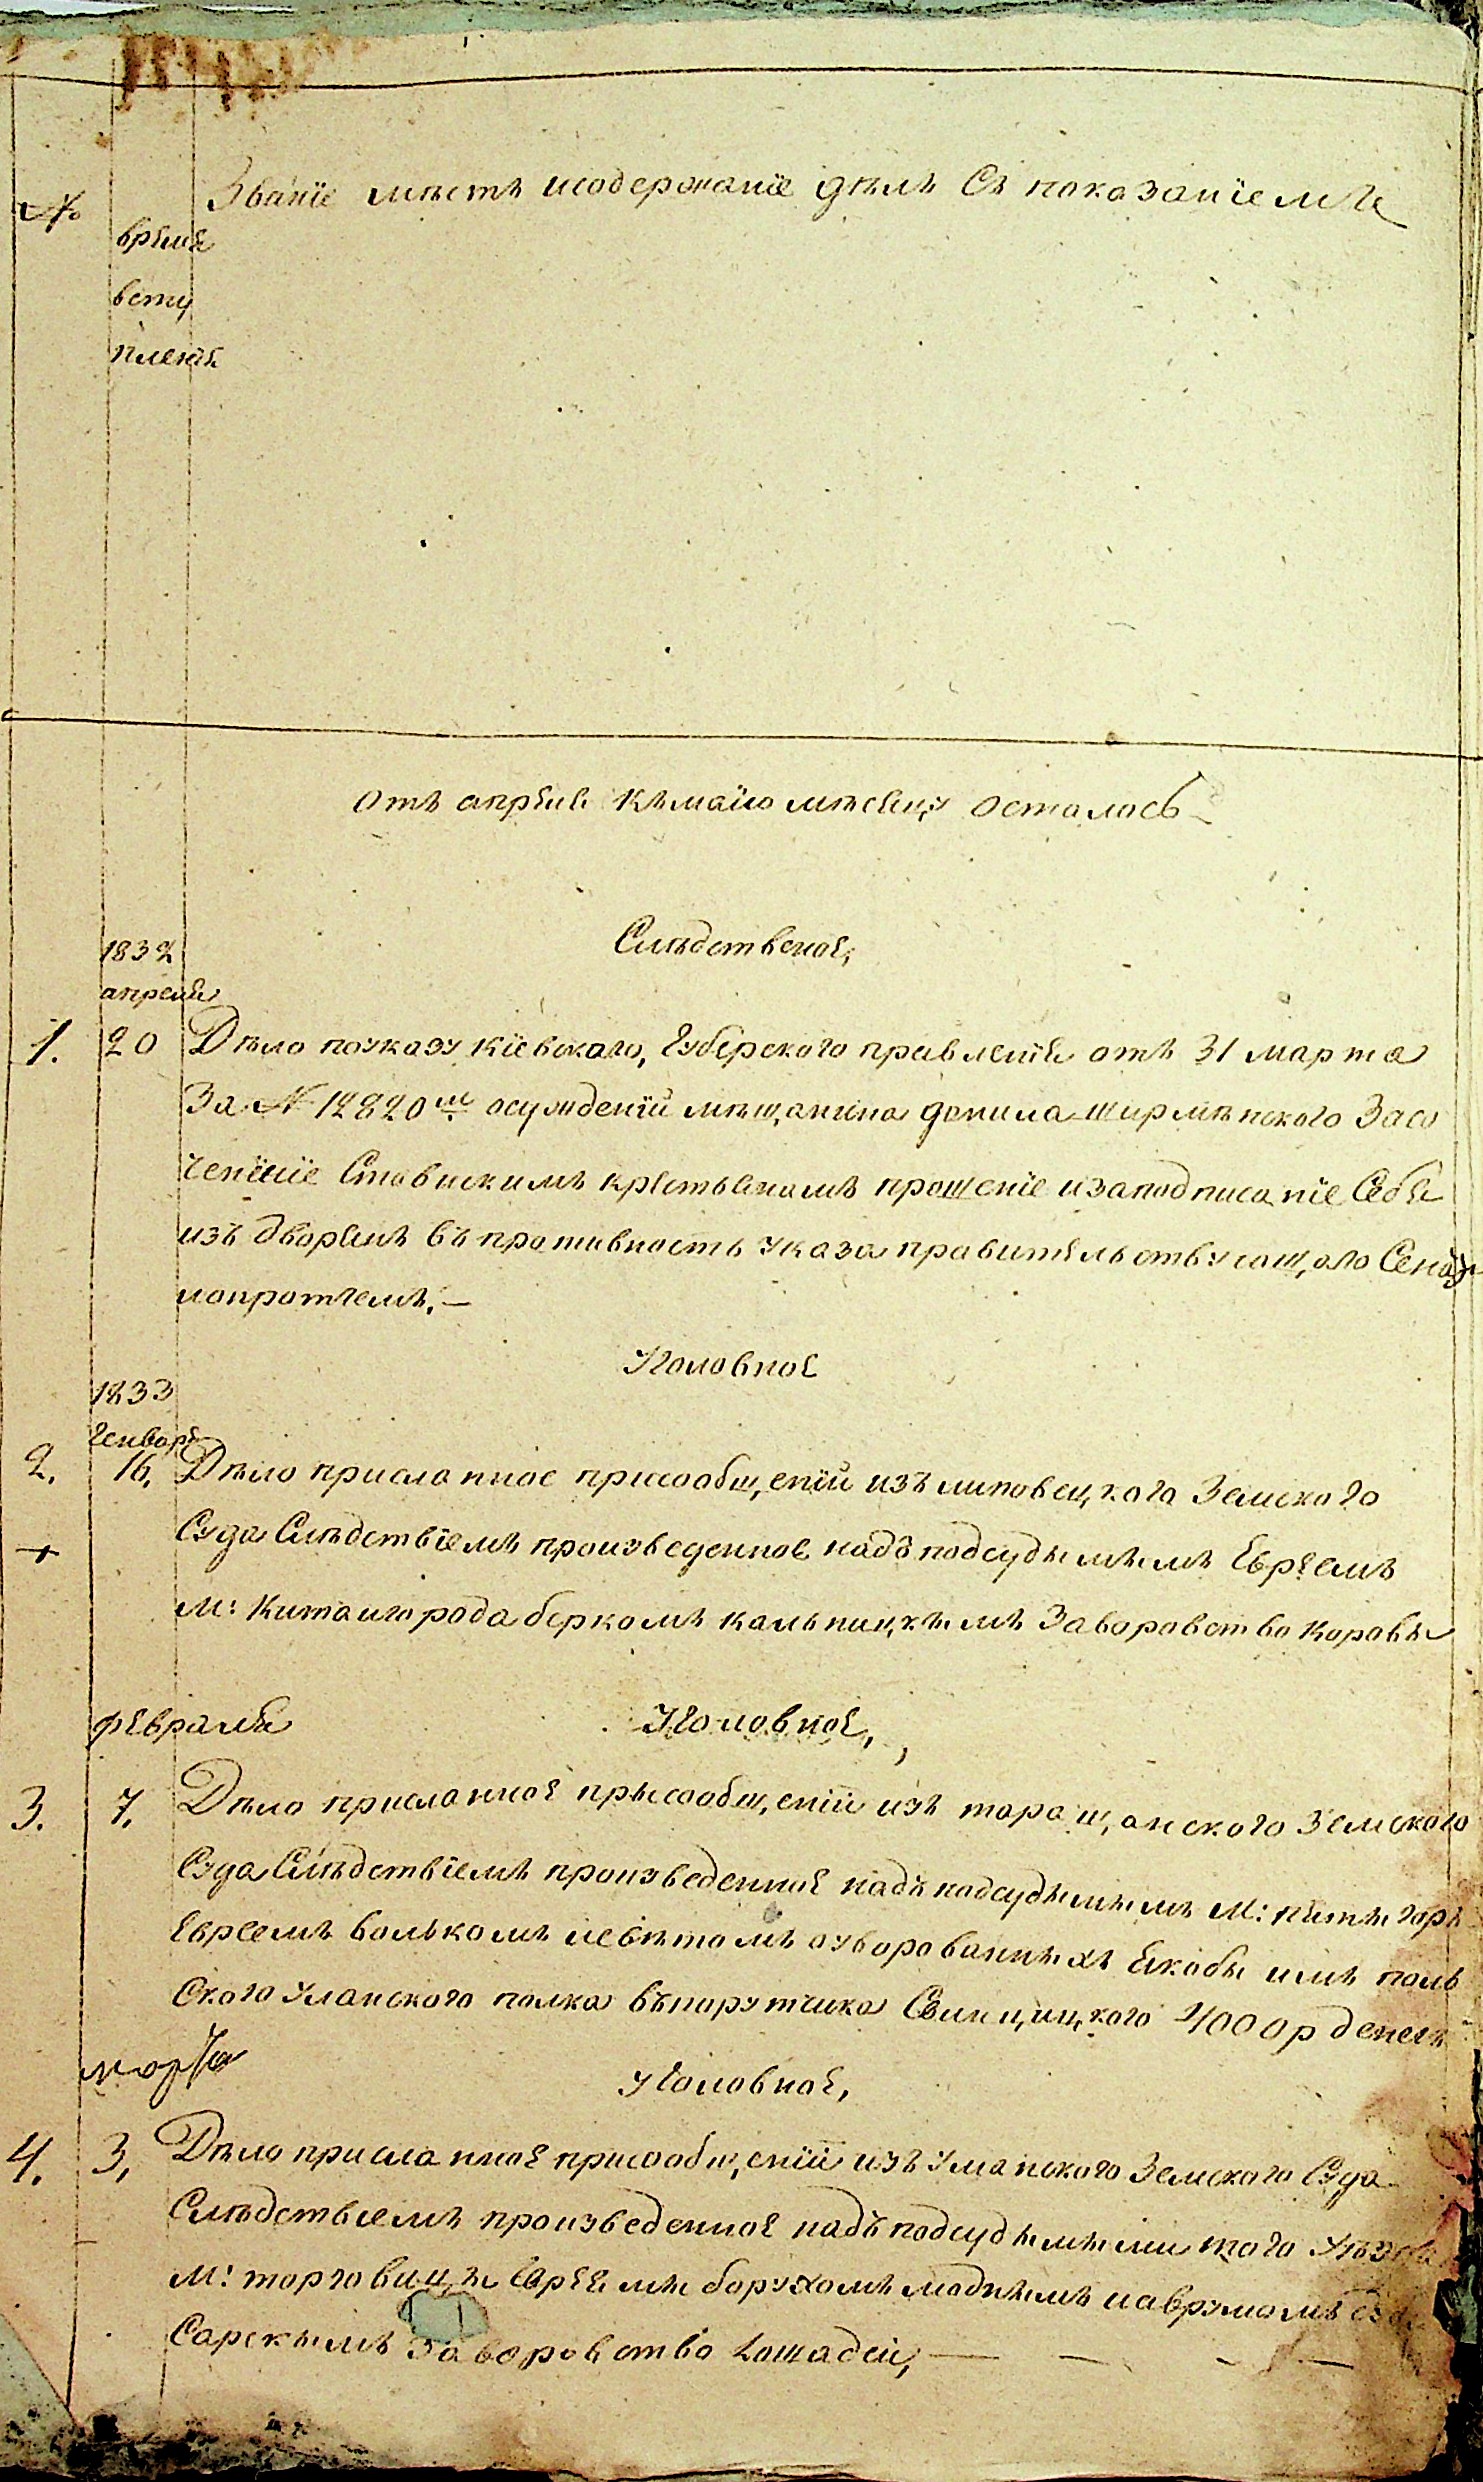 №
время
всту
пленія
Званіе мѣстъ исодержаніе дѣлъ Съ показаніемъ
отъ апреля къмаїю мѣсяцу осталось
Слѣдственое,
1832
апреля
1. 20 Дѣло поуказу кіевскаго, Губерского правленія отъ 31 марта
За № 12820м осужденїи мѣщанина данила ширмѣнского Засо
ченїнїе Ставискимъ крестьянамъ прошеніе изаподписаніе Себя
изъ дворянъ въпротивность указа правительствующ,аго Сената
ипротчемъ. —
Уголовное
1833
Генваря
2. 16. Дѣло присланное присообщ,енїи изъ липовец,кого Земского
Суда Слѣдствїемъ произведенное надъ подсудымымъ Евреемъ
м: Китаигорода беркомъ кальниц,кымъ Заворовство коровы
февраля
Уголовное,
3. 7. Дѣло присланное прысообщ,енїи изъ таращ,анского Земского
Суда Слѣдствїемъ произведенное надъ подсудымымъ м: пятыгоръ
Евреемъ волькомъ оуворованныхъ Якобы имъ поль
Ского Уланского полка въпорутчика 4000 р денегъ
марта
Уголовное,
4. 3, Дѣло присланное присообщ,енїи изъ Уманского Земского Суда
Слѣдствіемъ произведенное надъ подсудымыми того Уѣзда
м: торговиц,ы Евреямы борухомъ моднымъ иаврумомъ
Сарскымъ Заворовство лошадеи, —